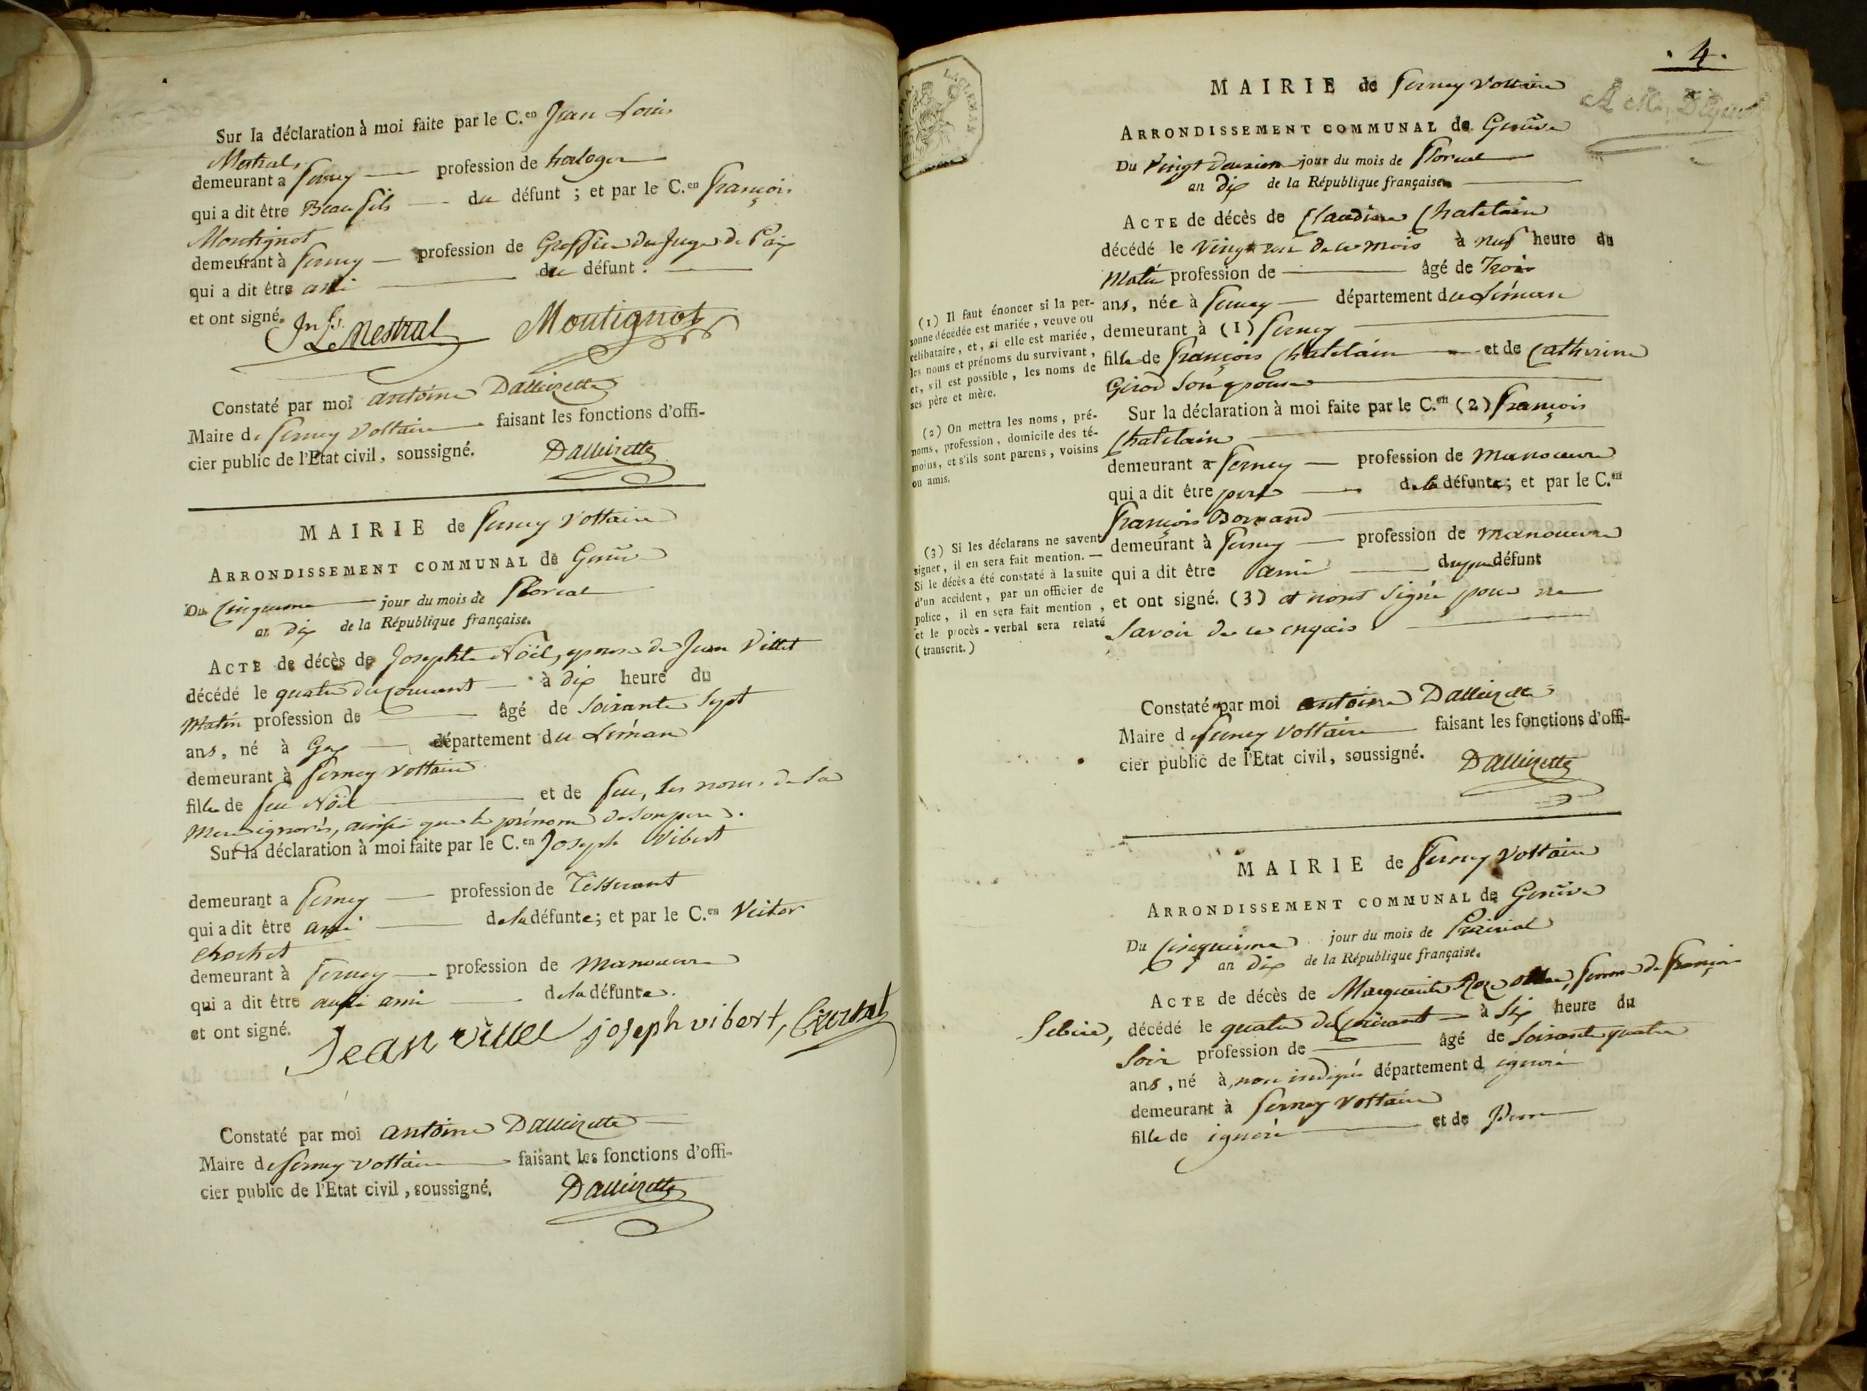 Sur la déclaration à moi faite par le C.en Jean Louis
Mestral
demeurant a ferney profession de horloger
qui a dit être Beau fils du défunt ; et par le C.en françois
Montignot
demeurant à ferney profession de Greffier du Juge de Paix
qui a dit être ami du défunt.
et ont signé.
Jn Ls Mestral Moutignot
Constaté par moi antoine
Maire de ferney Voltaire faisant les fonctions d'offi-
cier public de l'Etat civil, soussigné.
MAIRIE de ferney Voltaire
ARRONDISSEMENT COMMUNAL de Genève
Du Cinquieme jour du mois de Floreal
an dix de la République française.
ACTE de décès de Josephte Nöel, epouse de Jean Villet
décédé le quatre du courant à dix heure du
Matin profession de âgé de soixante sept
ans, né à Gex département du Léman
demeurant à ferney Voltaire
fille de feu Nöel et de feu, les noms de la
Mere ignorés, ainsi que le prénom de son pere.
Sur la déclaration à moi faite par le C.en Joseph Vibert
demeurant a ferney profession de Tisserant
qui a dit être ami de la défunte; et par le C.en Victor
Crochet
demeurant à ferney profession de manoeuvre
qui a dit être aussi ami de la défunte.
et ont signé.
Jean villet joseph vibert,
Constaté par moi antoine
Maire de ferney voltaire faisant les fonctions d'offi-
cier public de l'Etat civil, soussigné.
. 4 .
MAIRIE de ferney Voltaire
ARRONDISSEMENT COMMUNAL de Genève
Du Vingt deuxieme jour du mois de Floreal
an dix de la République française.
ACTE de décès de Claudine Chatelain
décédé le vingt un de ce mois à neuf heure du
Matin profession de âgé de Trois
ans, née à ferney département du Léman
demeurant à (1) ferney
fille de françois Chatelain et de Catherine
Girod son epouse
Sur la déclaration à moi faite par le C.en (2) françois
Chatelain
demeurant a ferney profession de manoeuvre
qui a dit être pere de la défunte; et par le C.en
françois Bornand
demeurant à ferney profession de manoeuvre
qui a dit être ami du père défunt
et ont signé. (3) et nont signé pour ne
savoir de ce enquis
(1) Il faut énoncer si la per-
sonne décédée est mariée, veuve ou
célibataire, et, si elle est mariée,
les noms et prénoms du survivant,
et, s'il est possible, les noms de
ses père et mère.
(2) On mettra les noms, pré-
noms, profession, domicile des té-
moins, et s'ils sont parens, voisins
ou amis.
(3) Si les déclarans ne savent
signer, il en sera fait mention. —
Si le décès a été constaté à la suite
d'un accident, par un officier de
police, il en sera fait mention,
et le procès-verbal sera relaté
( transcrit. )
Constaté par moi antoine
Maire de ferney Voltaire faisant les fonctions d'offi-
cier public de l'Etat civil, soussigné.
MAIRIE de ferney Voltaire
ARRONDISSEMENT COMMUNAL de Genève
Du Cinquieme jour du mois de Prairial
an dix de la République française.
ACTE de décès de Marguerite femme de françois
décédé le quatre du Courant à six heure du
Soir profession de âgé de soixante quatre
ans, né à, non indiqué département d ignoré
demeurant à ferney Voltaire
fille de ignoré et de